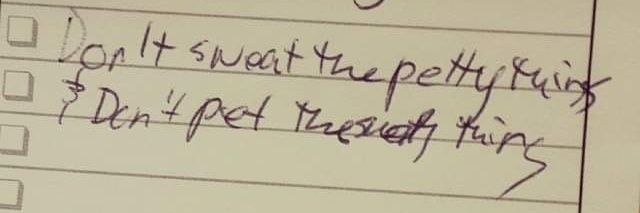 Don't sweat the petty things
& Don't pet the sweaty things